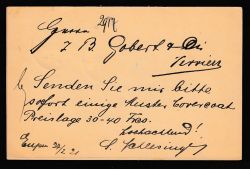 2977
Herren
J. B. Gobert & Cie
Verviers
Senden Sie mir bitte
sofort einige Muster Covercoat
Preislage 30-40 Frcs.
Hochachtend!
Eupen 30/12 21
S. Schlesinger